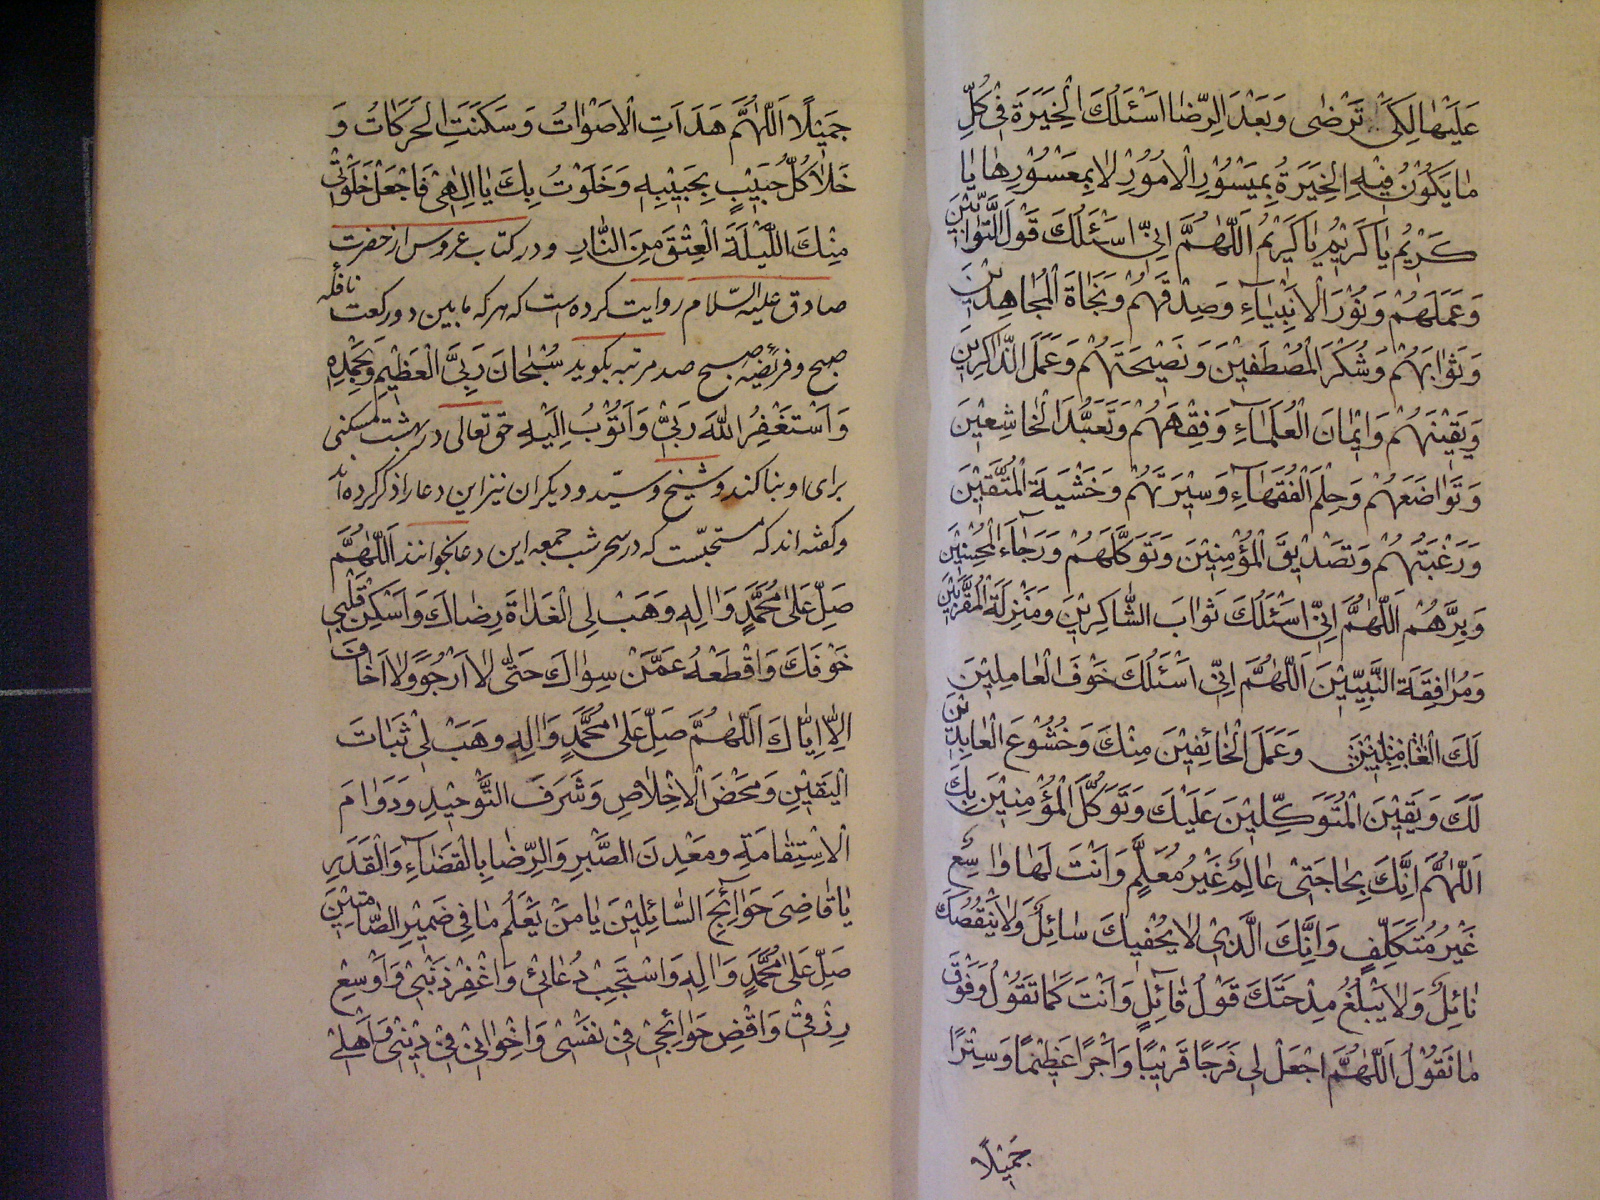 عَلَيْهَا لِكَيْ تَرْضٰى وَبَعْدَ الرِّضَا اَسْئَلُكَ الْخِيَرَةَ فِيْ كُلِّ
مٰا يَكُوْنُ فِيْهِ الْخِيَرَةُ بِمَيْسُوْرِ الْاُمُوْرِ لاٰ بِمَعْسُوْرِهٰا يٰا
كَرِيْمُ يٰا كَرِيْمُ يٰا كَرِيْمُ اَللّٰهُمَّ اِنِّيْ اَسْئَلُكَ قَوْلَ التَّوّٰابِيْنَ
وَعَمَلَهُمْ وَنُوْرَ الْاَنْبِيٰاۤءِ وَصِدْقَهُمْ وَنَجٰاةَ الْمُجٰاهِدِيْنَ
وَثَوٰابَهُمْ وَشُكْرَ الْمُصْطَفَيْنَ وَنَصِيْحَتَهُمْ وَعَمَلَ الذّٰاكِرِيْنَ
وَيَقِيْنَهُمْ وَاِيْمٰانَ الْعُلَمٰاۤءِ وَفِقْهَهُمْ وَتَعَبُّدَ الْخٰاشِعِيْنَ
وَتَوٰاضُعَهُمْ وَحِلْمَ الْفُقَهٰاۤءِ وَسِيْرَتَهُمْ وَخَشْيَةَ الْمُتَّقِيْنَ
وَرَغْبَتَهُمْ وَتَصْدِيْقَ الْمُؤْمِنِيْنَ وَتَوَكُّلَهُمْ وَرَجٰاۤءَ الْمُحْسِنِيْنَ
وَبِرَّهُمْ اَللّٰهُمَّ اِنِّيْ اَسْئَلُكَ ثَوٰابَ الشّٰاكِرِيْنَ وَمَنْزِلَةَ الْمُقَرَّبِيْنَ
وَمُرٰافَقَةَ النَّبِيّيْنَ اَللّٰهُمَّ اِنِّيْ اَسْئَلُكَ خَوْفَ الْعٰامِلِيْنَ
لَكَ وَعَمَلَ الْخٰائِفِيْنَ مِنْكَ وَخُشُوْعَ الْعٰابِدِيْنَ
لَكَ وَيَقِيْنَ الْمُتَوَكِّلِيْنَ عَلَيْكَ وَتَوَكُّلَ الْمُؤْمِنِيْنَ بِكَ
اَللّٰهُمَّ اِنَّكَ بِحٰاجَتِيْ عٰالِمٌ غَيْرُ مُعَلَّمٍ وَاَنْتَ لَهٰا وٰاسِعٌ
غَيْرُ مُتَكَلِّفٍ وَاِنَّكَ الَّذِيْ لاٰ يُحْفِيْكَ سٰائِلٌ وَلاٰ يَنْقُصُكَ
نٰائِلٌ وَلاٰ يَبْلُغُ مِدْحَتَكَ قَوْلُ قٰاۤئِلٍ وَاَنْتَ كَمٰا تَقُوْلُ وَفَوْقَ
مٰا نَقُوْلُ اَللّٰهُمَّ اجْعَلْ لِي فَرَجًا قَرِيْبًا وَاَجْرًا عَظِيْمًا وَسِتْرًا
جَمِيْلًا
جَمِيْلًا اَللّٰهُمَّ هَدَاَتِ الْاَصْوٰاتُ وَسَكَنَتِ الْحَرَكٰاتُ وَ
خَلاٰ كُلُّ حَبِيْبٍ بِحَبِيْبِهِ وَخَلَوْتُ بِكَ يٰا اِلٰهِيْ فَاجْعَلْ خَلْوَتِيْ
مِنْكَ اللَّيْلَةَ الْعِتْقَ مِنَ النّٰارِ ودر كتاب عروس از حضرت
صادق عليه السّلام روايت كرده است كه هركه ما بين دو ركعت نافله
صبح وفريضهٔ صبح صد مرتبه بگويد سُبْحٰانَ رَبِّيَ الْعَظِيْمِ وَبِحَمْدِهِ
وَاَسْتَغْفِرُ اللّٰهَ رَبِّيْ وَاَتُوْبُ اِلَيْهِ حق تعالى در بهشت مسكنى
براى او بنا كند وشيخ وسيّد وديگران نيز اين دعا را ذكر كرده اند
وگفته اند كه مستحبّست كه در سحر شب جمعه اين دعا بخوانند اَللّٰهُمَّ
صَلِّ عَلىٰ مُحَمَّدٍ وَاٰلِهِ وَهَبْ لِي الْغَدٰاةَ رِضٰاكَ وَاَسْكِنْ قَلْبِي
خَوْفَكَ وَاقْطَعْهُ عَمَّنْ سِوٰاكَ حَتّٰى لاٰ اَرْجُوَ وَلاٰ اَخٰافَ
اِلاّٰ اِيّٰاكَ اَللّٰهُمَّ صَلِّ عَلىٰ مُحَمَّدٍ وَاٰلِهِ وَهَبْ لِيْ ثَبٰاتَ
الْيَقِيْنِ وَمَحْضَ الْاِخْلاٰصِ وَشَرَفَ التَّوْحِيْدِ وَدَوٰامَ
الْاِسْتِقٰامَةِ وَمَعْدِنَ الصَّبْرِ وَالرِّضٰا بِالْقَضٰاۤءِ وَالْقَدَرِ
يٰا قٰاضِيَ حَوٰاۤئِجَ السّٰاۤئِلِيْنَ يٰا مَنْ يَعْلَمُ مٰا فِي ضَمِيْرِ الصّٰامِتِيْنَ
صَلِّ عَلىٰ مُحَمَّدٍ وَاٰلِهِ وَاسْتَجِبْ دُعٰائِيْ وَاغْفِرْ ذَنْبِيْ وَاَوْسِعْ
رِزْقِيْ وَاقْضِ حَوٰائِجِيْ فِيْ نَفْسِيْ وَاِخْوٰانِيْ فِيْ دِيْنِيْ وَاَهْلِيْ